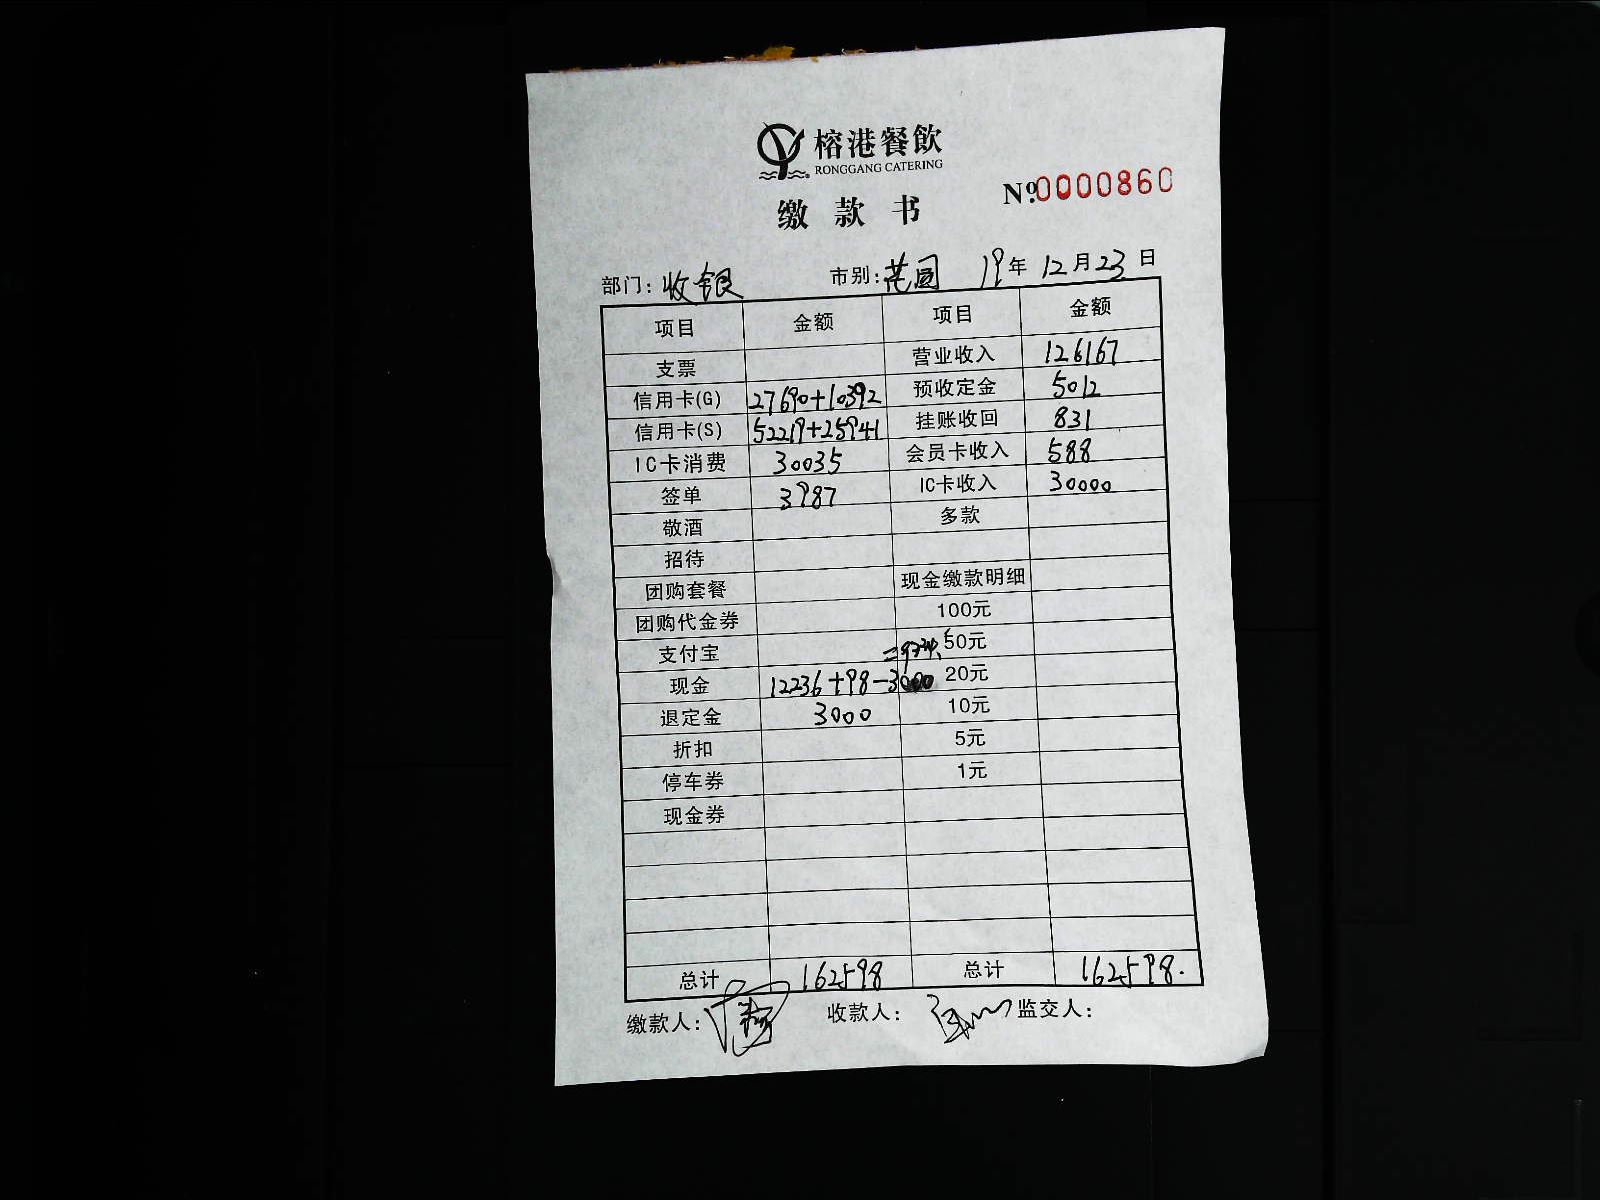 榕港餐飲
RONGGANG CATERING
缴款书
№0000860
部门：收银 市别：花园 19年12月23日
项目 金额 项目 金额
支票 营业收入 126167
信用卡(G) 27690+10392 预收定金 5012
信用卡(S) 52219+25941 挂账收回 831
IC卡消费 30035 会员卡收入 588
签单 3987 IC卡收入 30000
敬酒 多款
招待
团购套餐 现金缴款明细
团购代金券 100元
支付宝 =9334. 50元
现金 12236+98-3000 20元
退定金 3000 10元
折扣 5元
停车券 1元
现金券
总计 162598 总计 162598.
缴款人： 收款人： 监交人：